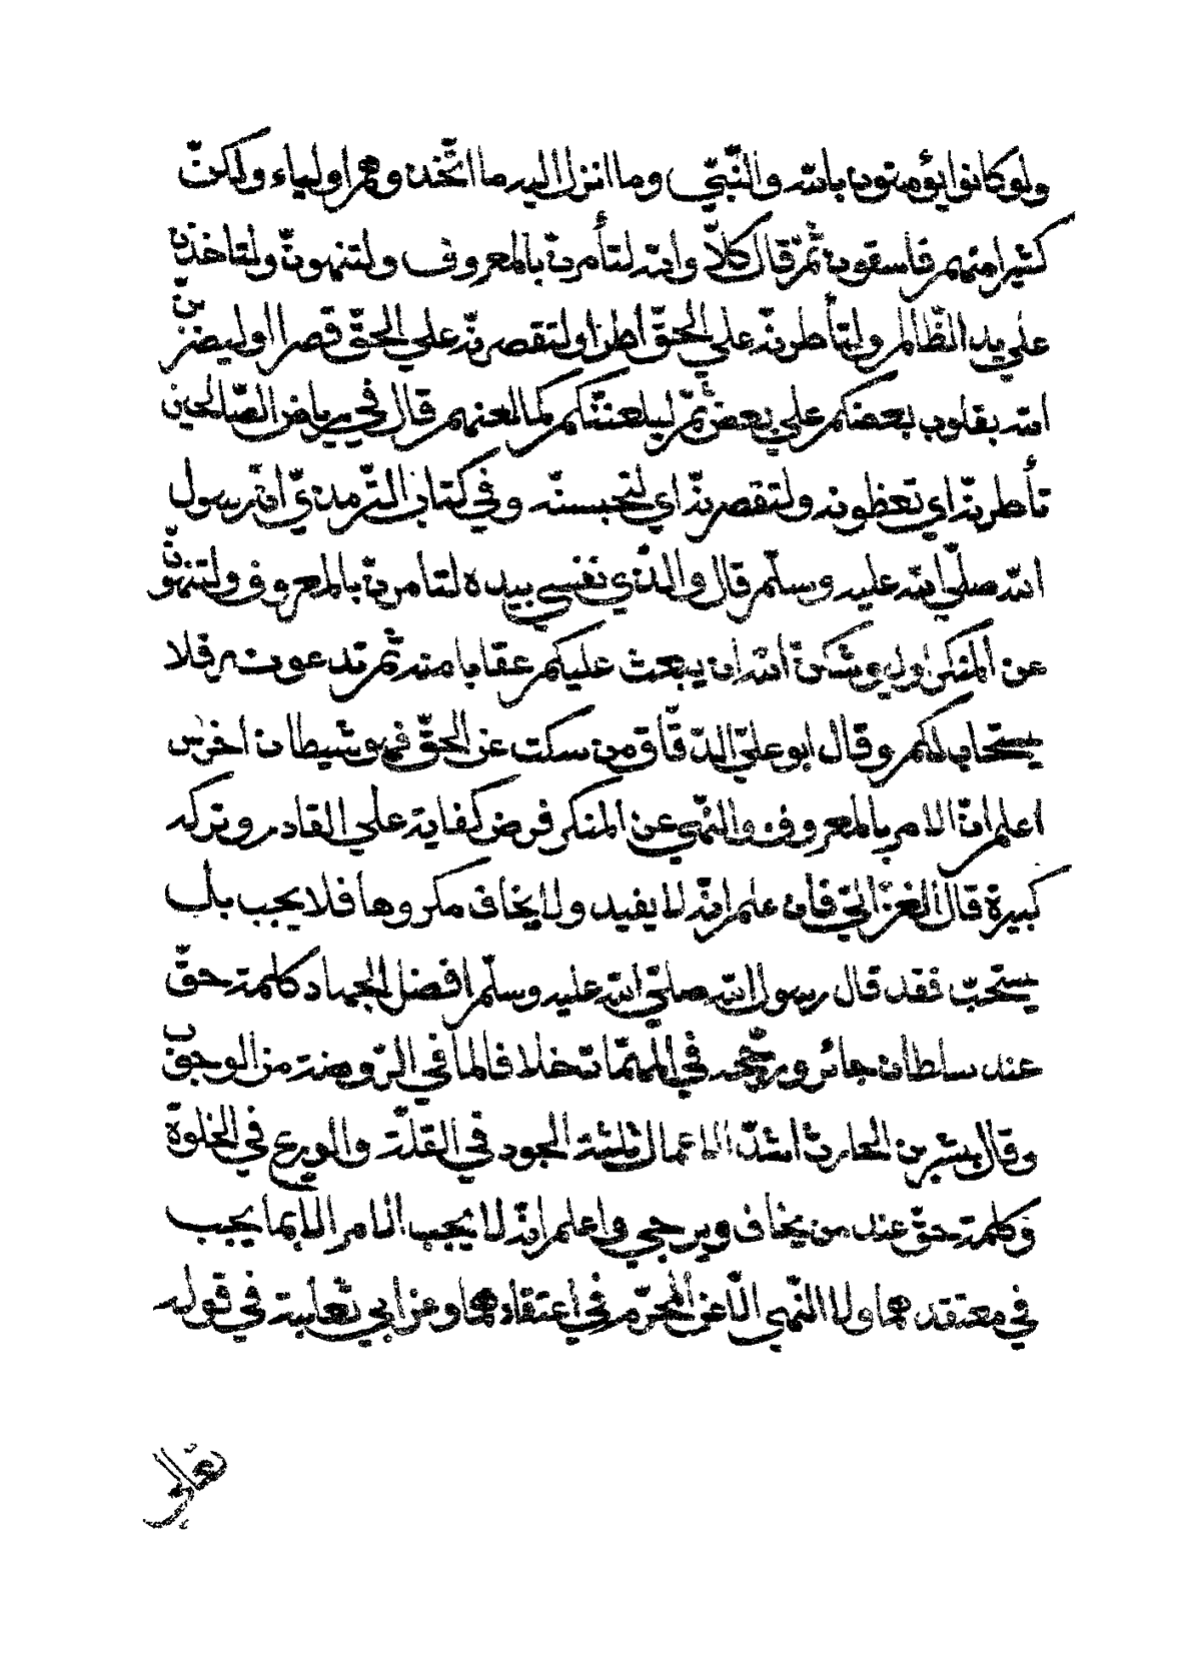 ولو كانوا يؤمنون بالله والنّبيّ وما انزل اليه ما اتّخذوهم اولياء ولكنّ
كثيرا منهم فاسقون ثمّ قال كلّا والله لتأمرنّ بالمعروف ولتنهونّ ولتاخذنّ
علي يد الظّالم ولتأطرنّه علي الحقّ اطرا ولتقصرنّه علي الحقّ قصرا او ليضربنّ
الله بقلوب بعضكم علي بعض ثمّ ليلعننّكم كما لعنهم قال في رياض الصّالحين
تأطرنّه اي تعظونه ولتقصرنّه اي لتحبسنّه وفي كتاب التّرمذيّ انّ رسول
الله صلّي الله عليه وسلّم قال والّذي نفسي بيده لتامرنّ بالمعروف ولتنهونّ
عن المنكر او ليوشكنّ الله ان يبعث عليكم عقابا منه ثمّ تدعونه فلا
يستجاب لكم وقال ابو عليّ الدّقّاق من سكت عن الحقّ فهو شيطان اخرس
اعلم انّ الامر بالمعروف والنّهي عن المنكر فرض كفاية علي القادر وتركه
كبيرة قال الغزّاليّ فان علم انّه لا يفيد ولا يخاف مكروها فلا يجب بل
يستحبّ فقد قال رسول الله صلّي الله عليه وسلّم افضل الجهاد كلمة حقّ
عند سلطان جائر ورجّحه في المهمّات خلافا لما في الرّوضة من الوجوب
وقال بشر بن الحارث اشدّ الاعمال ثلثة الجود في القلّة والورع في الخلوة
وكلمة حقّ عند من يخاف ويرجي واعلم انّه لا يجب الامر الا بما يجب
في معتقدهما ولا النّهي الّا عن المحرّم في اعتقادهما وعن ابي ثعلبة في قوله